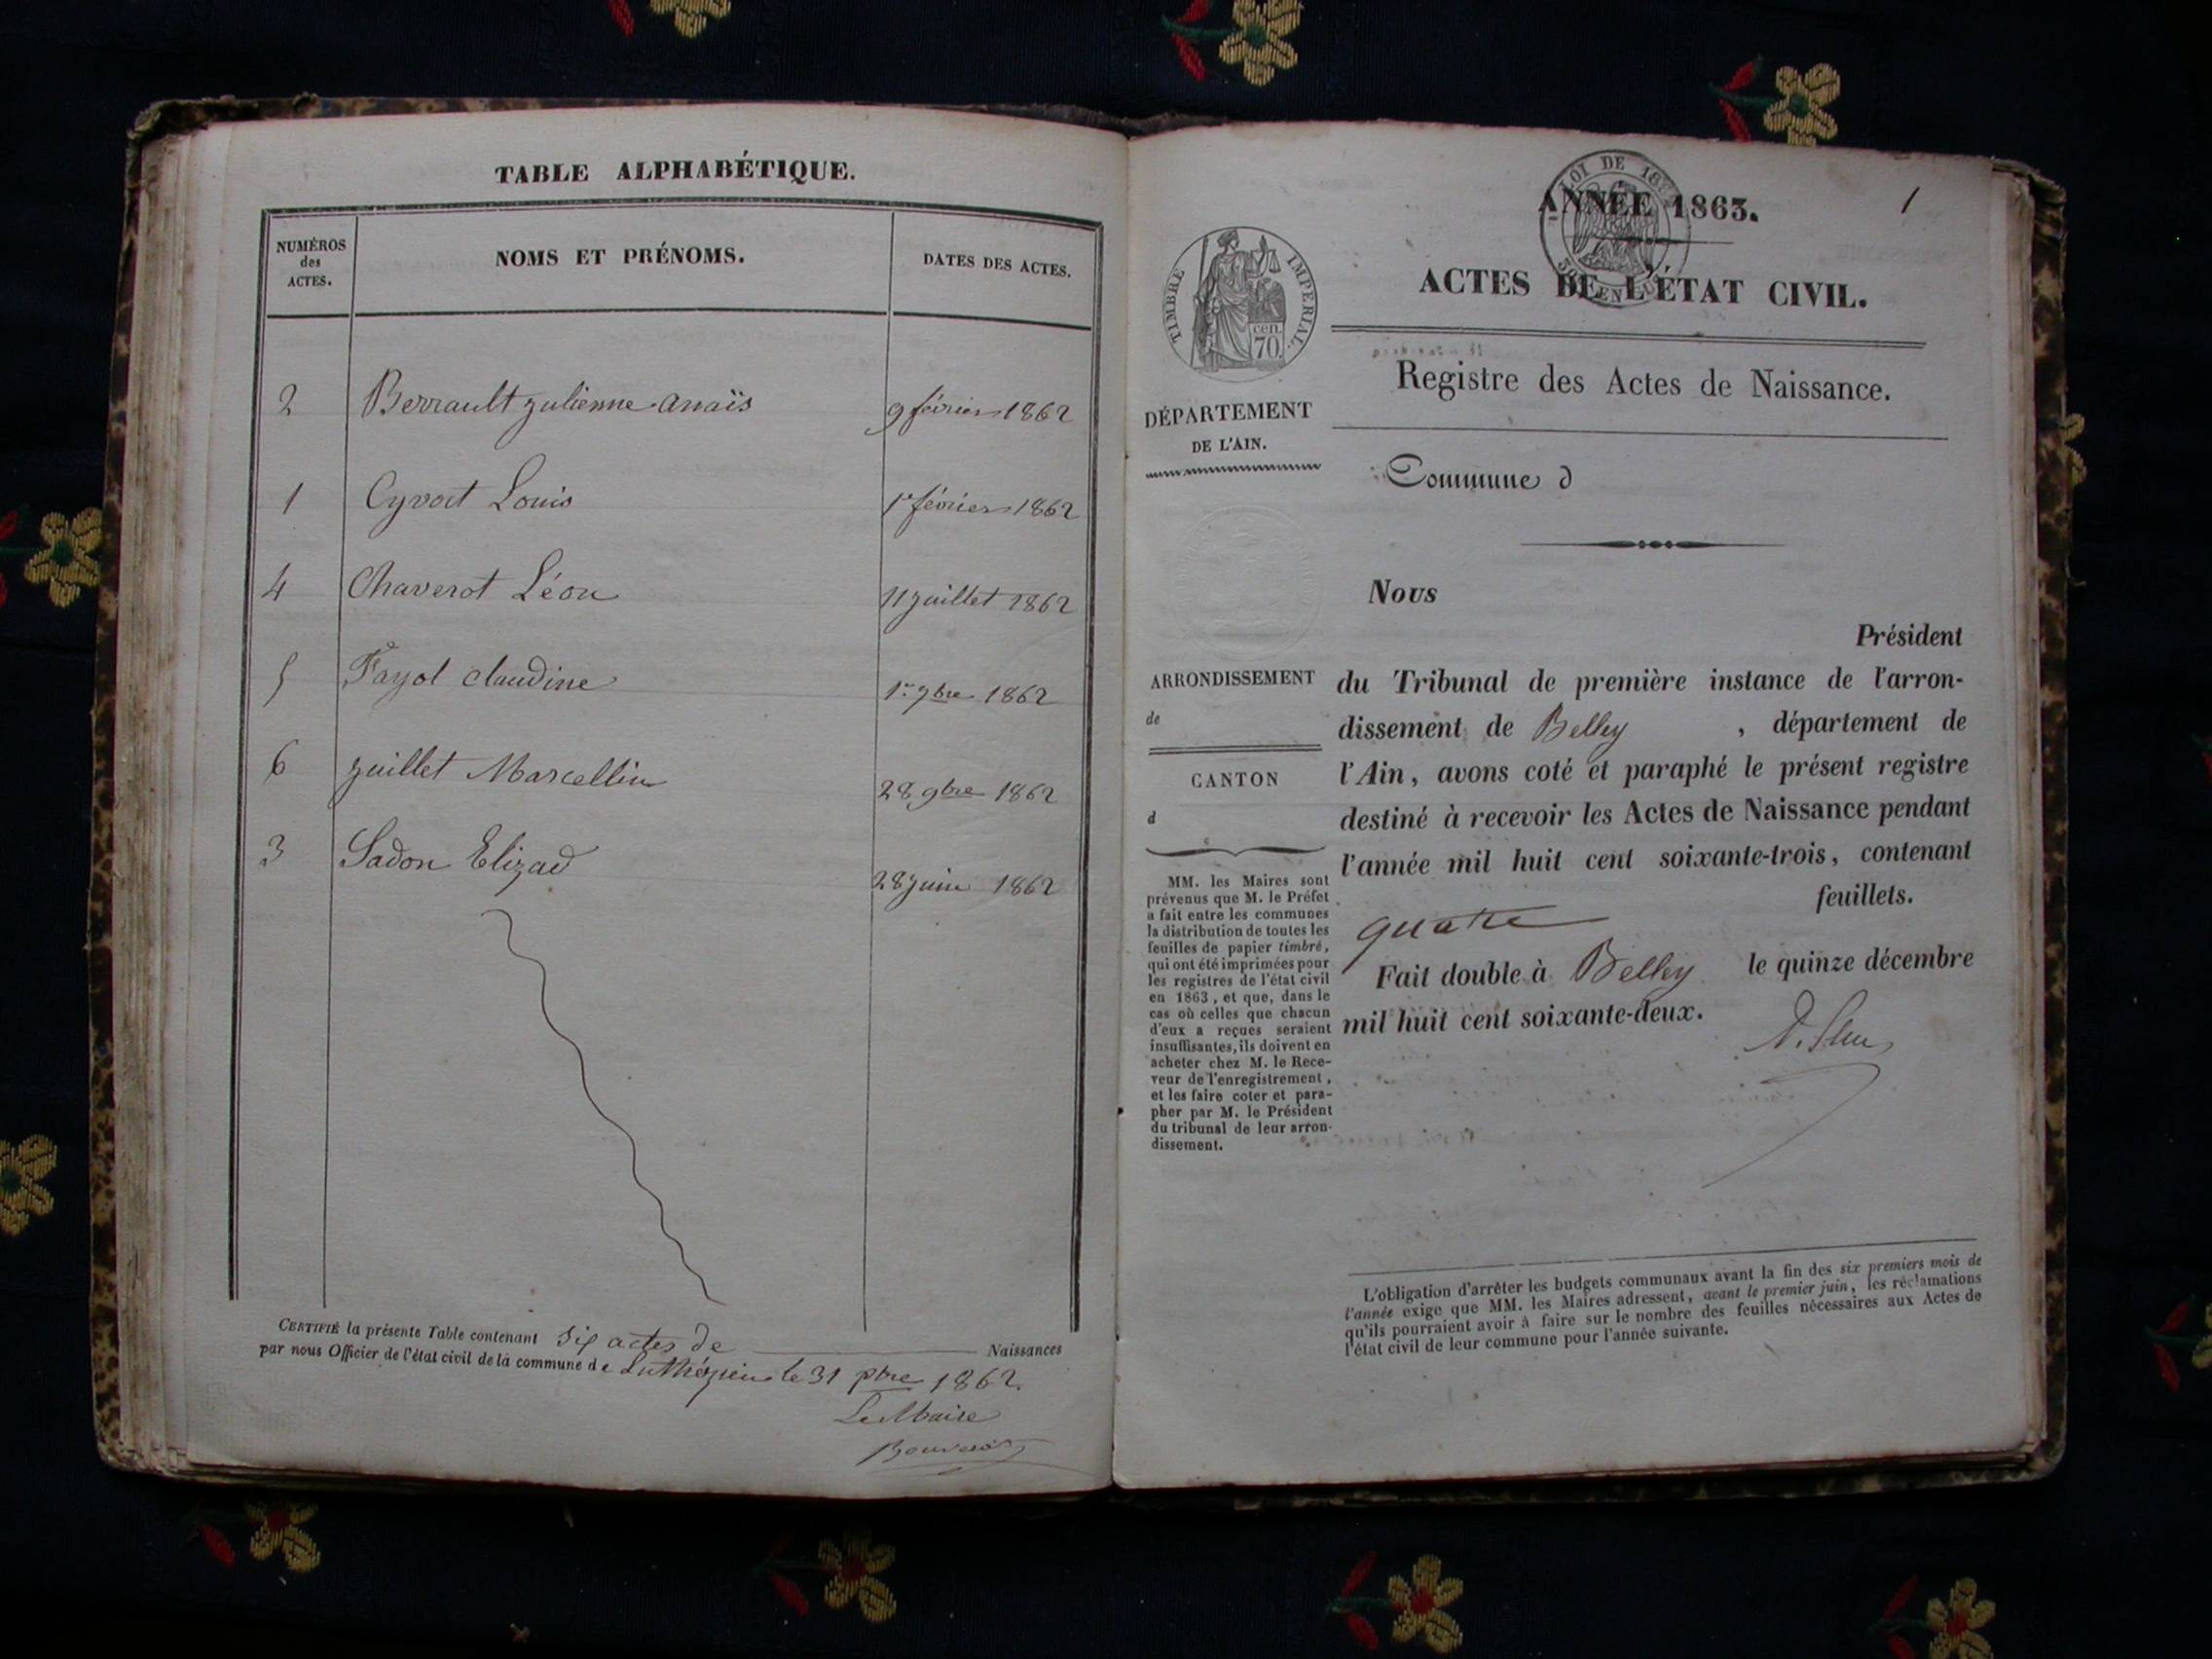 TABLE ALPHABÉTIQUE.
NUMÉROS des ACTES.
NOMS ET PRÉNOMS.
DATES DES ACTES.
2 Berrault julienne anaïs 9 février 1862
1 Cyvoct Louis 1er février 1862
4 Chaverot Léon 11 juillet 1862
5 Fayol claudine 1er 7bre 1862
6 juillet Marcellin 28 9bre 1862
3 Sadon Elizad 28 juin 1862
CERTIFIÉ la présente Table contenant six actes de Naissances
par nous Officier de l'état civil de la commune de Luthézieu le 31 Xbre 1862.
Le Maire
LOI DE
ANNÉE 1863.
1
TIMBRE IMPERIAL.
cen.
70.
ACTES DE L'ÉTAT CIVIL.
Registre des Actes de Naissance.
DÉPARTEMENT
DE L'AIN.
Commune d
Nous
Président
ARRONDISSEMENT
de
CANTON
d
du Tribunal de première instance de l'arron-
dissement de Belley , département de
l'Ain, avons coté et paraphé le présent registre
destiné à recevoir les Actes de Naissance pendant
l'année mil huit cent soixante-trois, contenant
quatre feuillets.
Fait double à Belley le quinze décembre
mil huit cent soixante-deux.
MM. les Maires sont
prévenus que M. le Préfet
a fait entre les communes
la distribution de toutes les
feuilles de papier timbré,
qui ont été imprimées pour
les registres de l'état civil
en 1863, et que, dans le
cas où celles que chacun
d'eux a reçues seraient
insuffisantes, ils doivent en
acheter chez M. le Rece-
veur de l'enregistrement,
et les faire coter et para-
pher par M. le Président
du tribunal de leur arron-
dissement.
L'obligation d'arrêter les budgets communaux avant la fin des six premiers mois de
l'année exige que MM. les Maires adressent, avant le premier juin, les réclamations
qu'ils pourraient avoir à faire sur le nombre des feuilles nécessaires aux Actes de
l'état civil de leur commune pour l'année suivante.